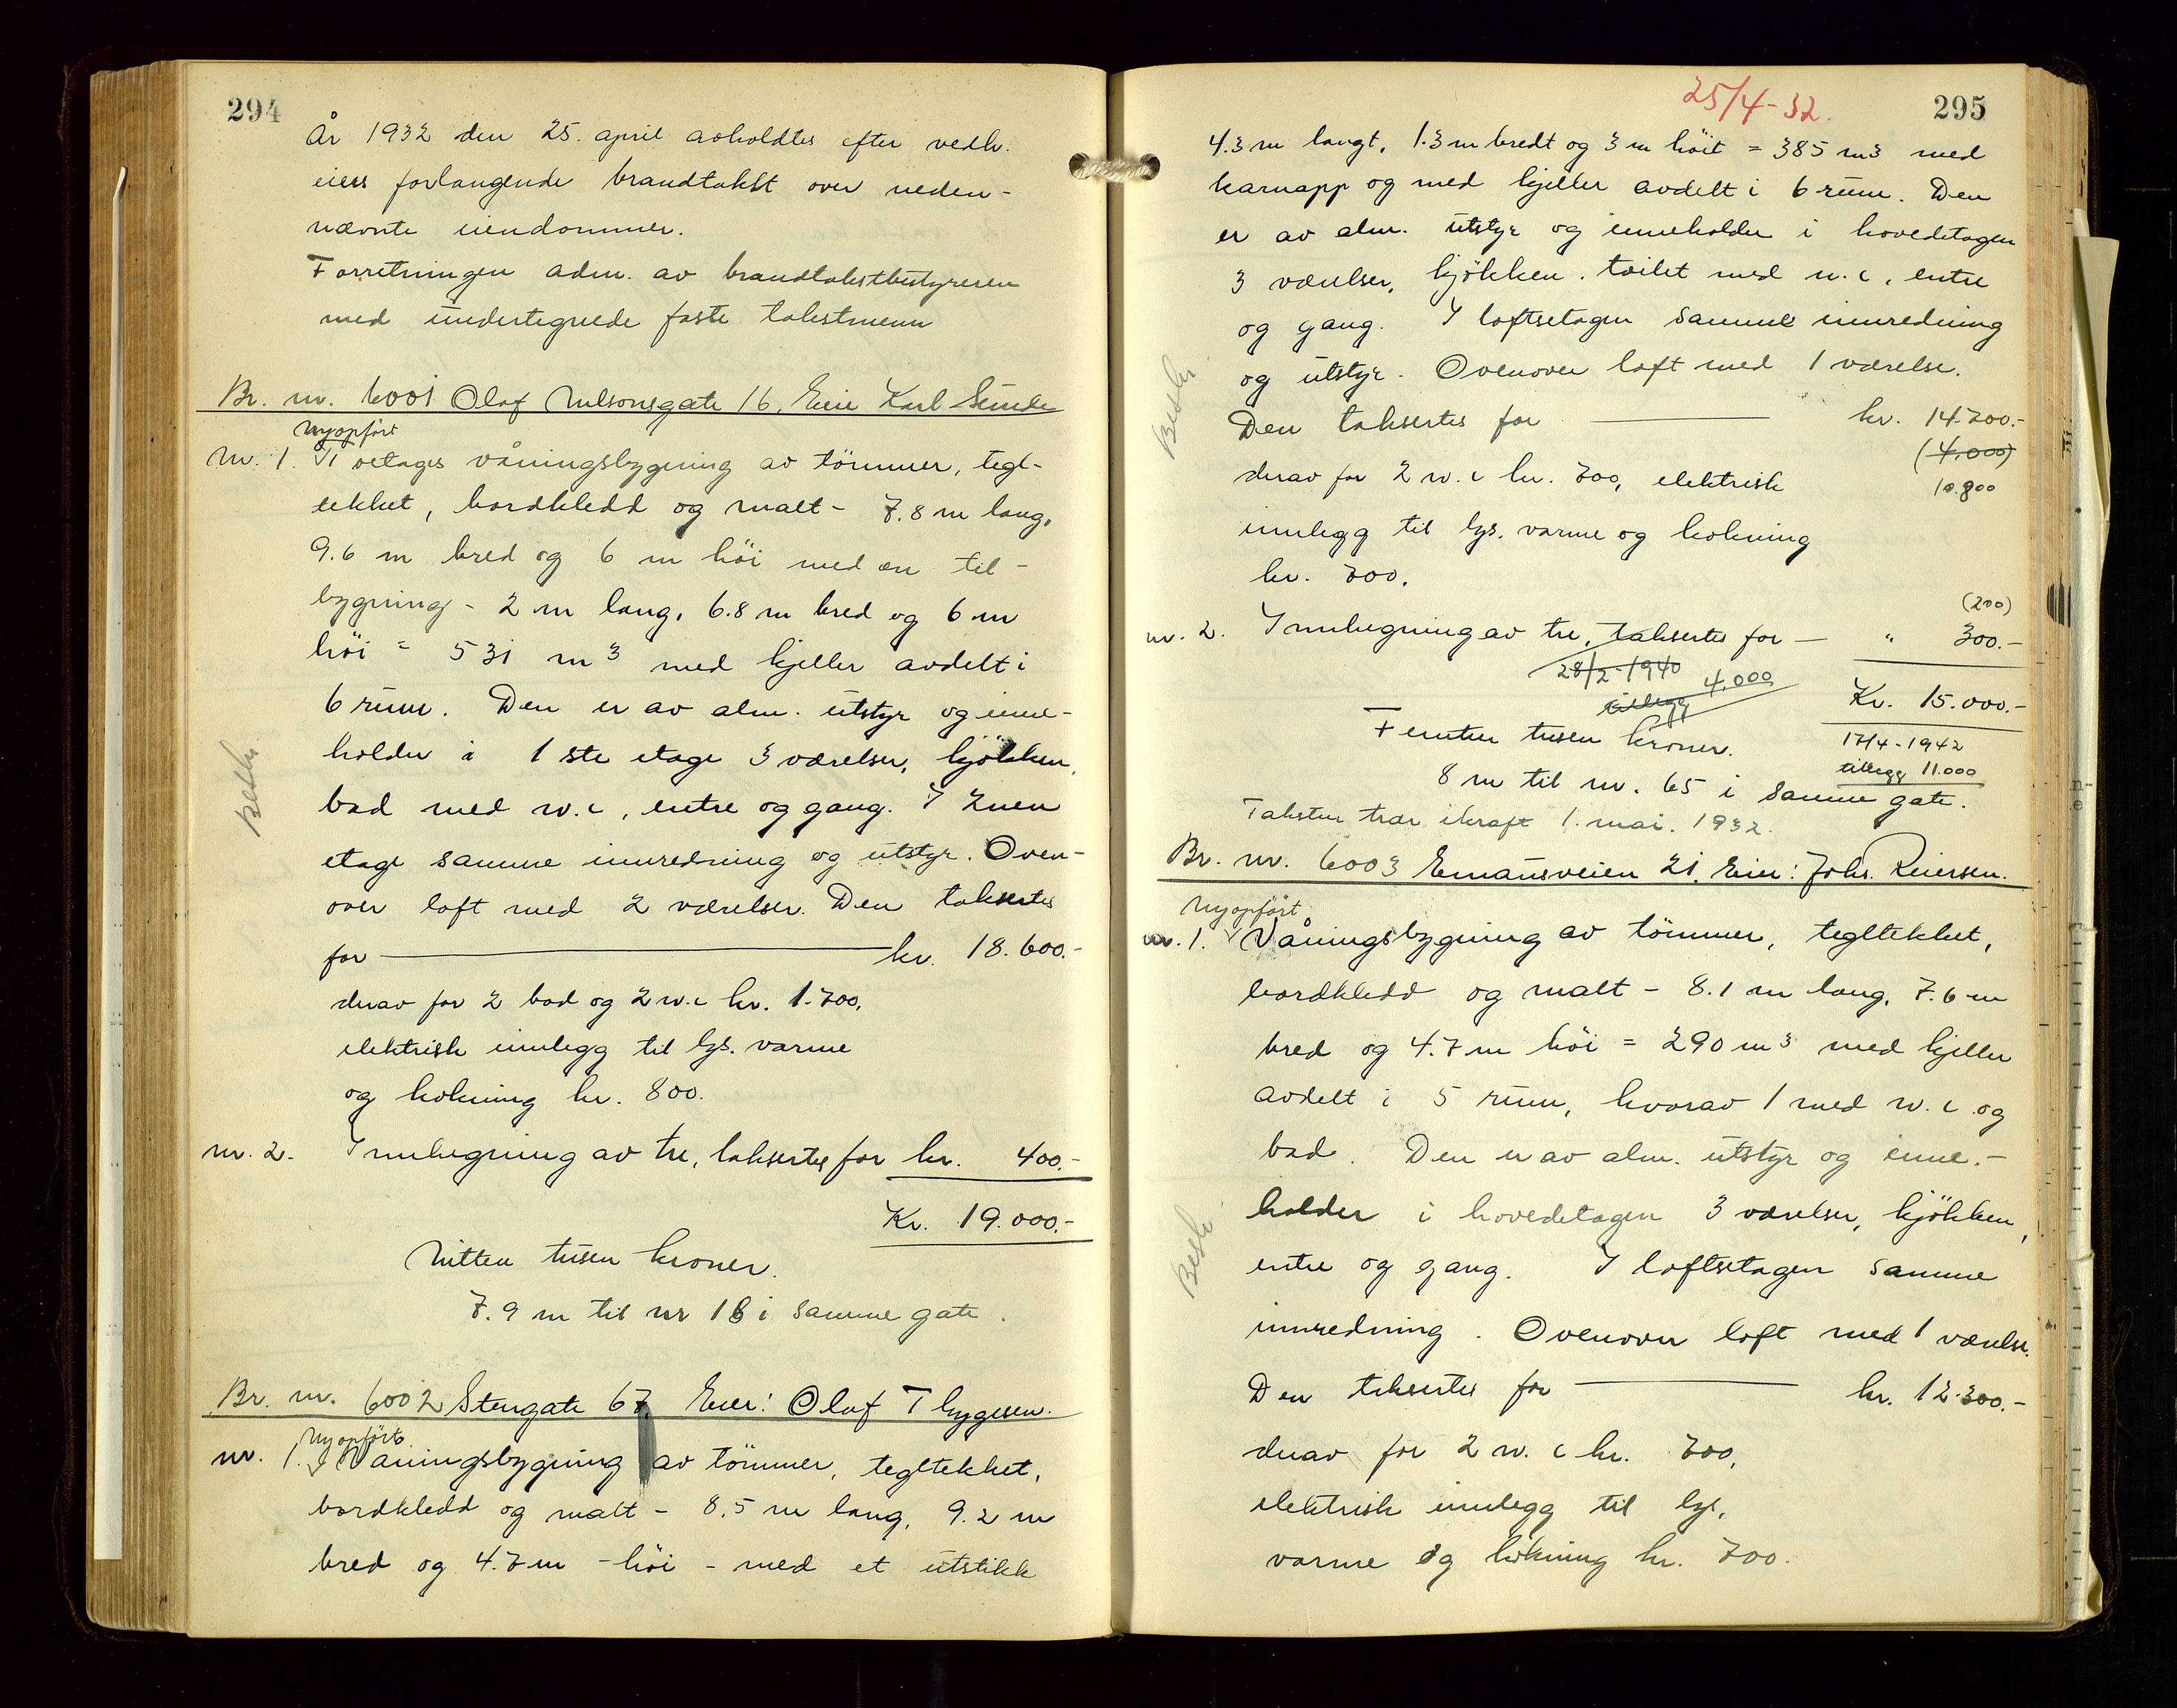 294
År 1932 den 25. april avholdtes efter vedk.
eiers forlangende brandtakst over neden-
nævnte eiendommer.
Forretningen adm. av brandtakstbestyreren
med undertegnede faste takstmenn
Br. nr. 6001 Olaf Nilsonsgate 16. Eier Karl Sunde
nyopført
nr. 1. 2 etages våningsbygning av tömmer, tegl-
tekket, bordkledd og malt - 7.8 m lang,
9.6 m bred og 6 m höi med en til-
bygning - 2 m lang, 6.8 m bred og 6 m
höi = 531 m3 med kjeller avdelt i
6 rum. Den er av alm. utstyr og inne-
holder i 1 ste etage 3 værelser, kjökken,
bad med w.c, entre og gang. I 2nen
etage samme innredning og utstyr. Oven-
over loft med 2 værelser. Den taksertes
for kr. 18.600.-
derav for 2 bad og 2 w.c kr. 1.700,
elektrisk innlegg til lys. varme
og kokning kr. 800.
nr. 2. Innhegning av tre, taksertes for kr. 400.-
Kr. 19.000.-
Nitten tusen kroner.
7.9 m til nr 18 i samme gate.
Br. nr. 6002 Stengate 67. Eier: Olaf Thygesen.
nyopført
nr. 1. Våningsbygning av tömmer, tegltekket,
bordkledd og malt - 8.5 m lang, 9.2 m
bred og 4.7 m - höi - med et utstikk
25/4-32.
295
4.3 m langt, 1.3 m bredt og 3 m höit = 385 m3 med
karnapp og med kjeller avdelt i 6 rum. Den
er av alm. utstyr og inneholder i hovedetagen
3 værelser, kjökken. toilet med w.c, entre
og gang. I loftsetagen samme innredning
og utstyr. Ovenover loft med 1 værelse.
Den taksertes for kr. 14.700.-
(4.000)
derav for 2 w.c kr. 700, elektrisk
10.800
innlegg til lys. varme og kokning
kr. 700.
(200)
nr. 2. Innhegning av tre, taksertes for - " 300.-
28/2-1940
tillegg 4.000
Kr. 15.000.-
Femten tusen kroner.
17/4-1942
tillegg 11.000
8 m til nr. 65 i samme gate.
Taksten trær ikraft 1. mai. 1932.
Br. nr. 6003 Emausveien 21. Eier: Johs. Reiersen.
nyopført
nr. 1. Våningsbygning av tömmer, tegltekket,
bordkledd og malt - 8.1 m lang, 7.6 m
bred og 4.7 m höi = 290 m3 med kjeller
avdelt i 5 rum, hvorav 1 med w.c og
bad. Den er av alm. utstyr og inne-
holder i hovedetagen 3 værelser, kjökken,
entre og gang. I loftsetagen samme
innredning. Ovenover loft med 1 værelse.
Den taksertes for kr. 12.300.-
derav for 2 w.c kr. 700,
elektrisk innlegg til lys,
varme og kokning kr. 700.